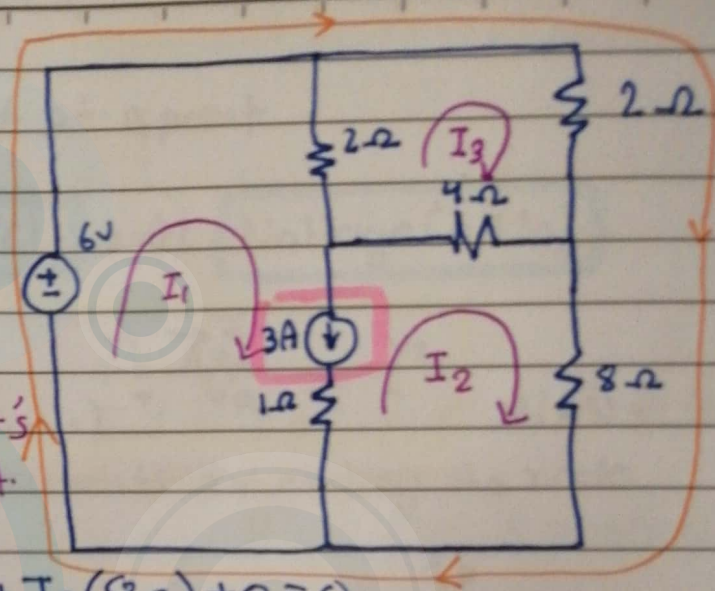 2Ω
2Ω
I3
4Ω
6V
±
I1
3A
I2
1Ω
8Ω